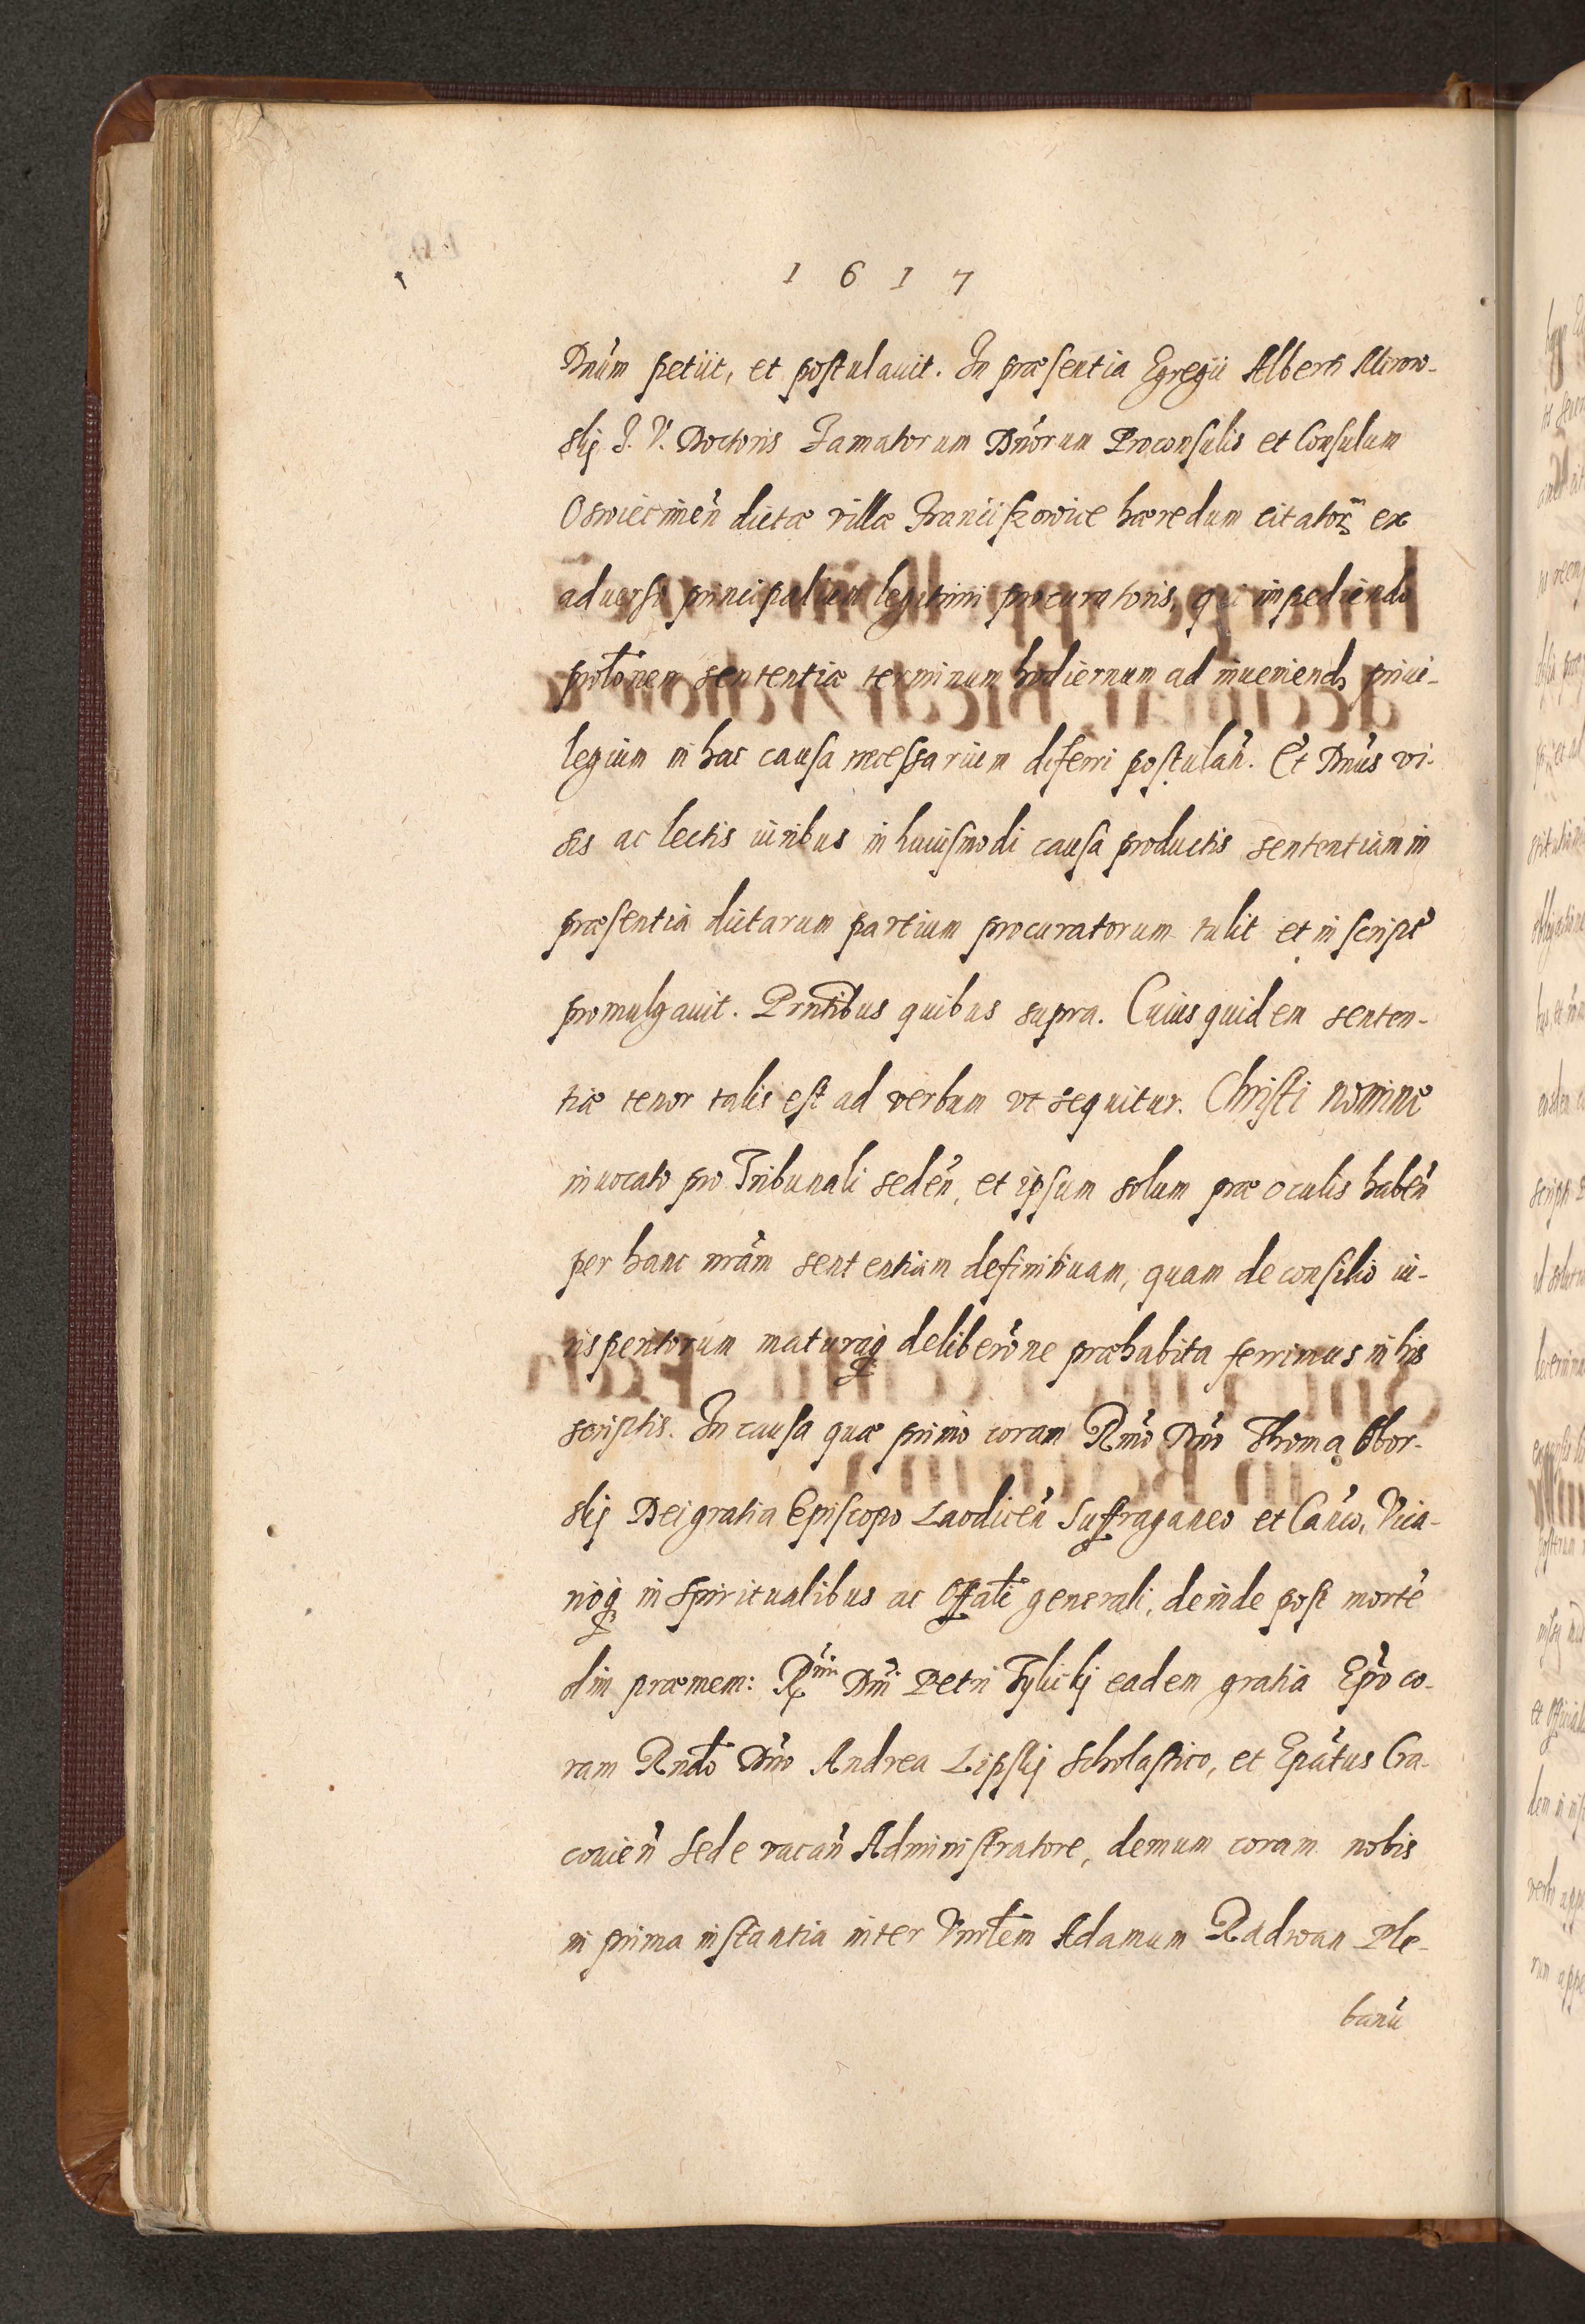 1 6 1 7
Dnūm petiit, et postulauit. In præsentia Egregii Alberti Mirow-
skij J. V. Doctoris Famatorum Dnōrum Proconsulis et Consulum
Oswiecimēn dictæ villæ Franciszkowice hæredum citator ex
aduerso principalium legitimi procuratoris, qui impediendo
prolōnem sententiæ terminum hodiernum ad inueniend priui-
legium in hac causa necessarium diferri postulān. Et Dnūs vi-
sis ac lectis iuribus in huiusmodi causa productis sententiam in
præsentia dictarum partium procuratorum tulit et in script
promulgauit. Prntībus quibus supra. Cuius quidem senten-
tiæ tenor talis est ad verbum vt sequitur. Christi nomine
inuocato pro Tribunali sedēn, et ipsum solum præ oculis habēn
per hanc nrām sententiam definitiuam, quam de consilio iu-
risperitorum maturaq deliberōne præhabita ferrimus in his
scriptis. In causa quæ primo coram Rmō Dnō Thoma Obor-
skij Dei gratia Episcopo Laodicēn Suffraganeo et Canco, Vica-
rioq in spiritualibus ac Offali generali, deinde post mortē
olim præmem: Rmi Dnī Petri Tylickj eadem gratia Epō co-
ram Rndo Dnō Andrea Lipskij Scholastico, et Epātus Cra-
couiēn Sede vacān Administratore, demum coram nobis
in prima instantia inter Vnrlem Adamum Radwan Ple-
banū